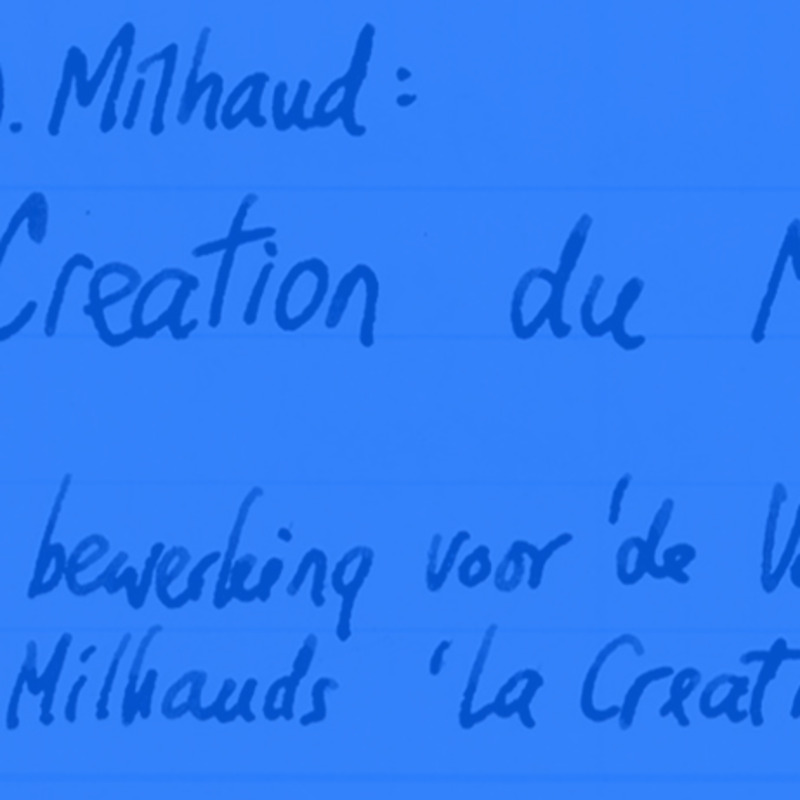 . Milhaud:
Creation du
bewerking voor 'de
Milhauds 'La Creat